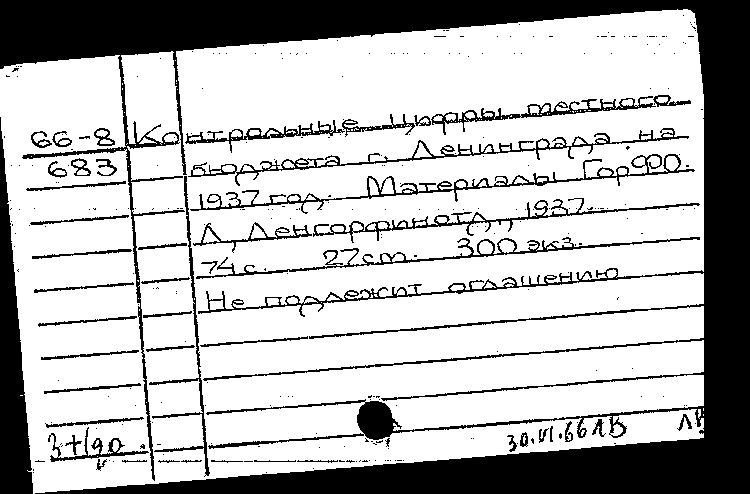 66-8 Контрольные цифры местного
683 бюджета г. Ленинграда на
1937 год. Материалы ГорФО.
Л., Ленгорфинотд., 1937.
74 с. 27 cm. 300 экз.
Не подлежит оглашению
30.VI.66 ЛВ